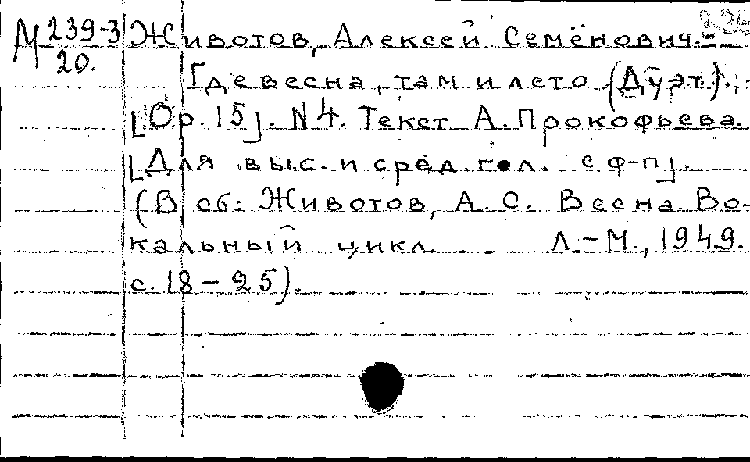 М 239-3 Животов, Алексей Семёнович.-
20. Где весна, там и лето (Дуэт).
[Ор. 15]. N4. Текст А. Прокофьева.
[Для выс. и сред гол. с ф-п].
(В сб: Животов, А. С. Весна Во-
кальный цикл. Л.-М., 1949.
с. 18-25).